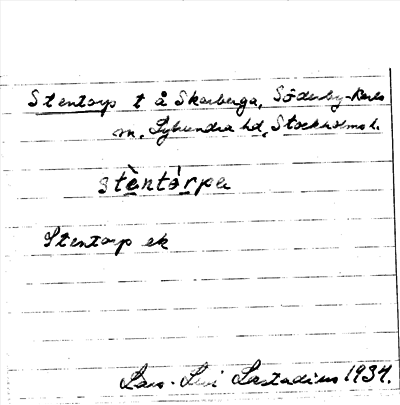 Stentorp t å Skarberga, Söderby-Karls
sn, Lyhundra hd, Stockholms l.
stèntòrpa
Stentorp ek
Lars-Levi Læstadius 1934.